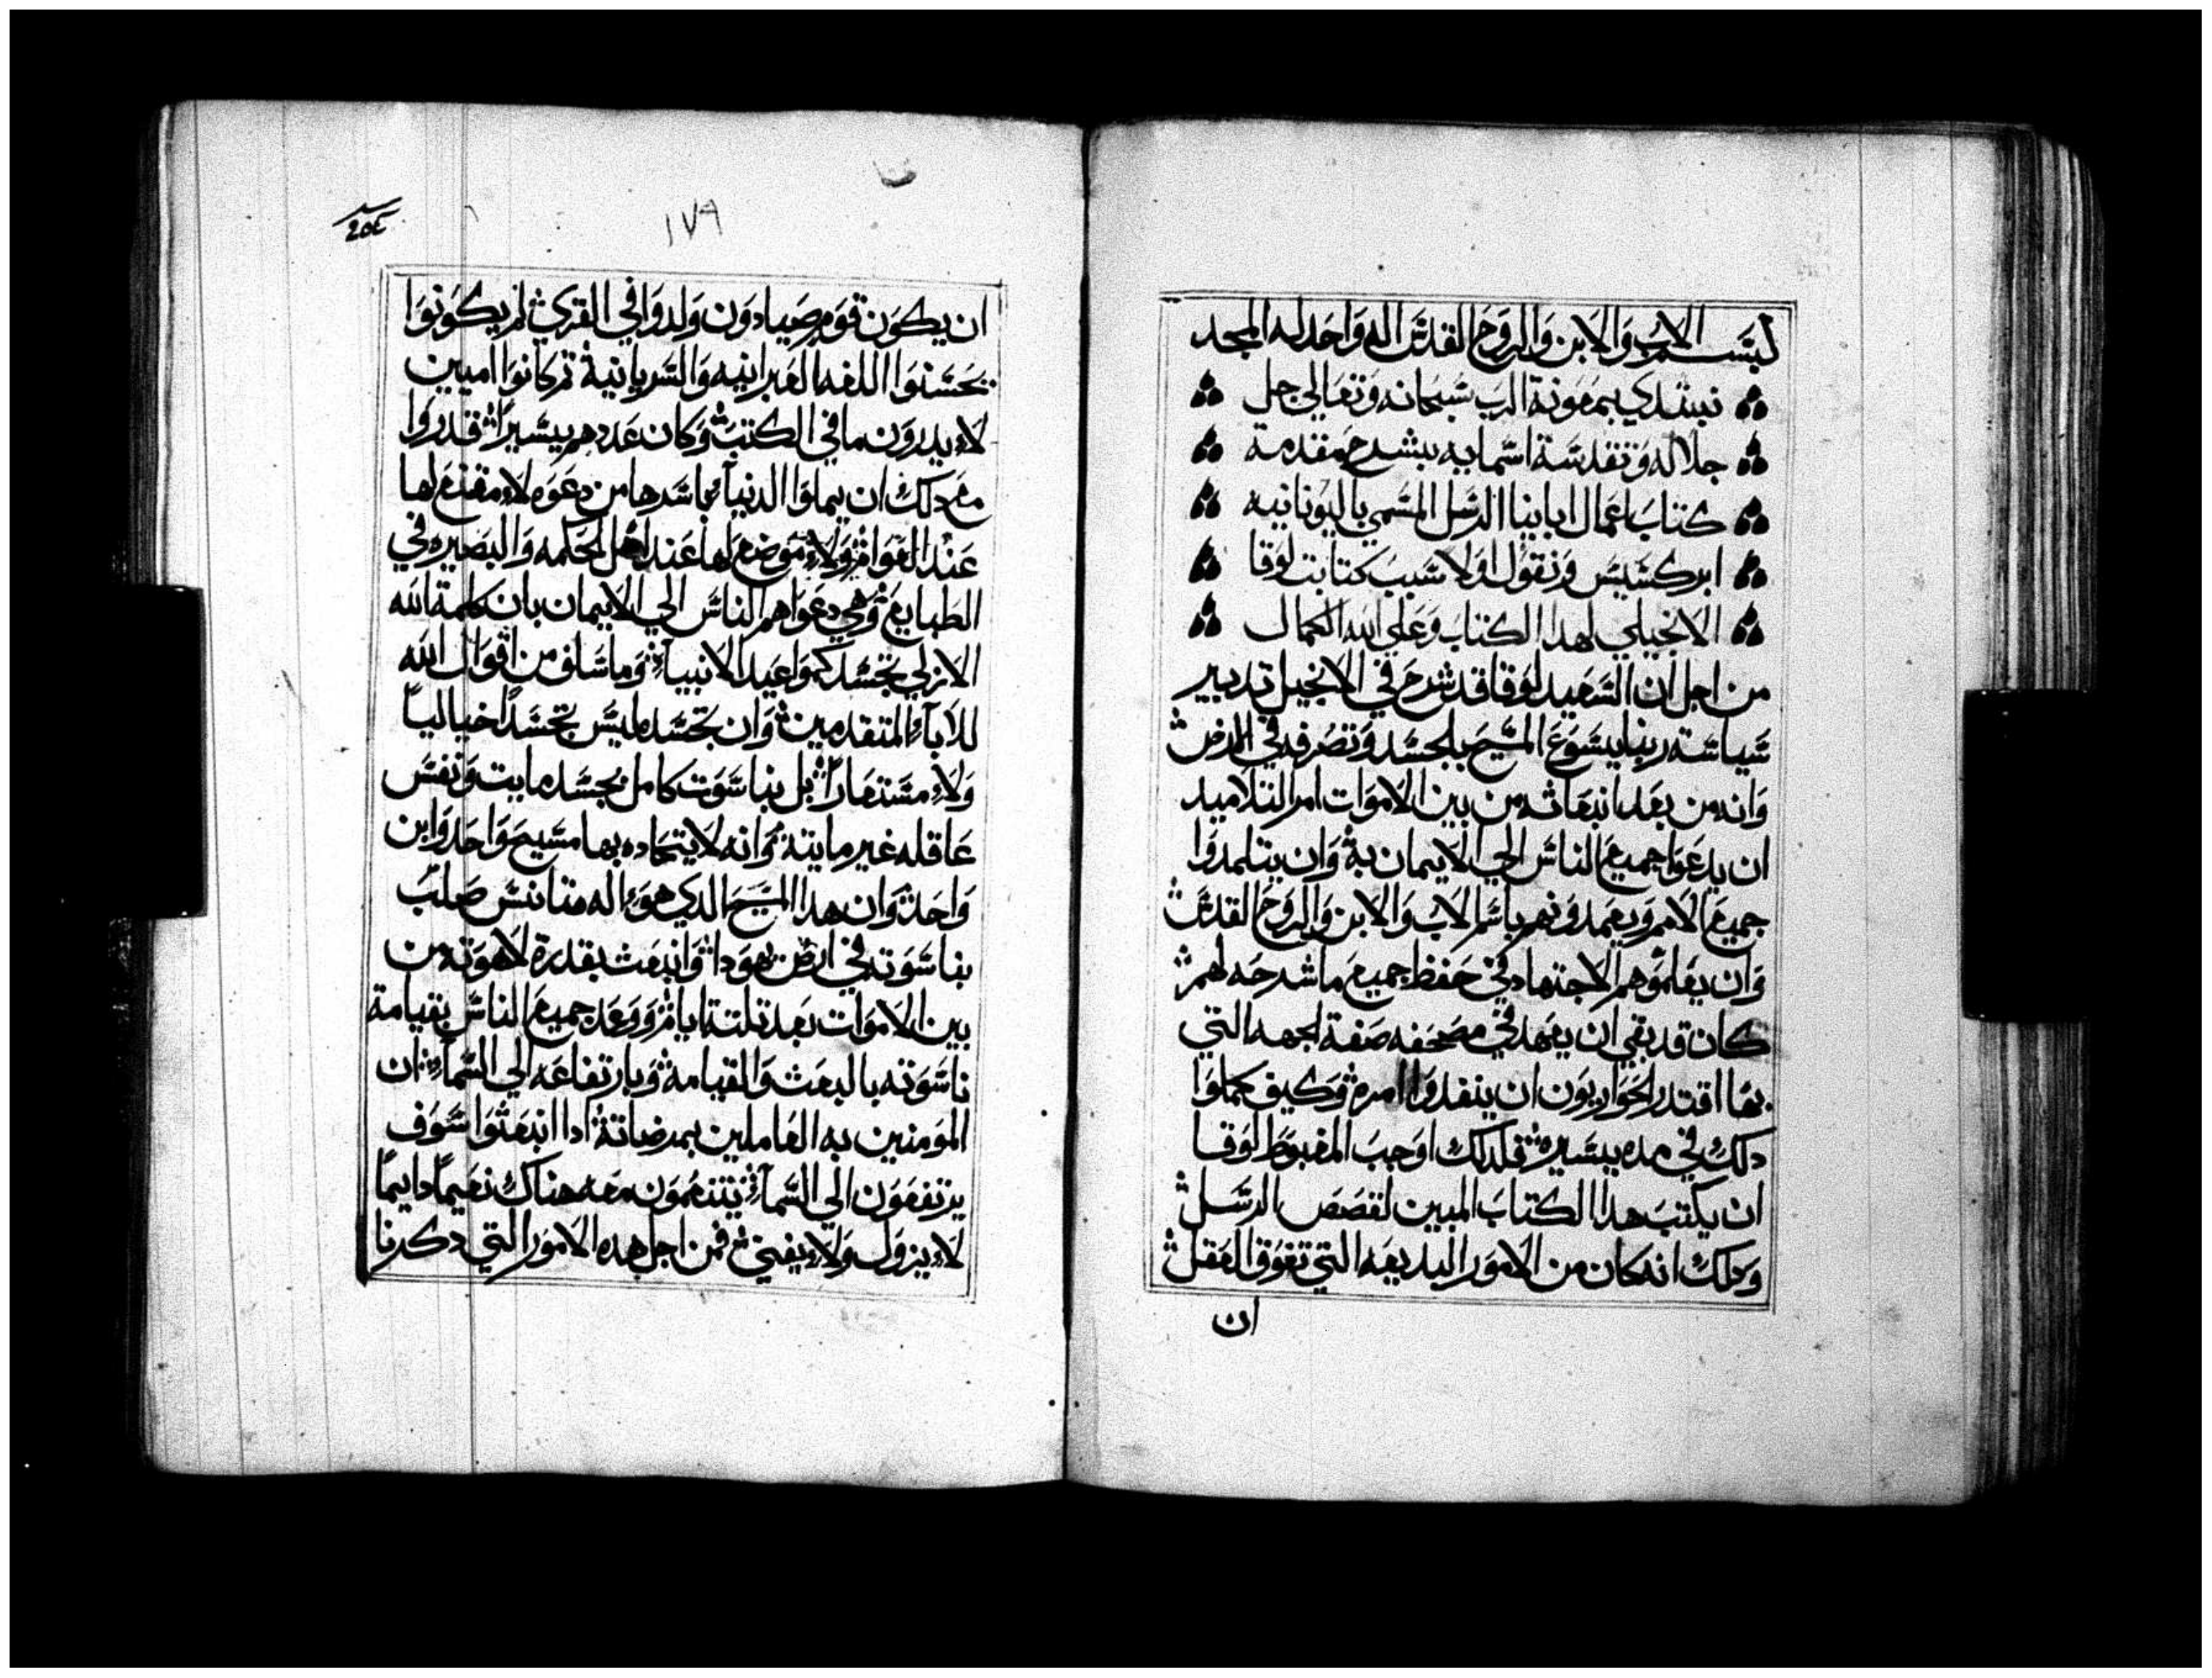 بسم الاب والابن والروح القدس اله واحد له المجد
نبتدي بمعونة الرب سبحانه وتعالي جل
جلاله وتقدسة اسمايه بشرح مقدمة
كتاب اعمال اباينا الرسل المسمي باليونانيه
ابركسيس ونقول اولا سبب كتابت لوقا
الانجيلي لهدا الكتاب وعلي الله الكمال
من اجل ان السعيد لوقا قد شرح في الانجيل تدبير
سياسته ربنا يسوع المسيح بالجسد وتصرفه في الارض
وانه من بعد انبعاثه من بين الاموات امر التلاميد
ان يدعوا جميع الناس الي الايمان به وان يتلمدوا
جميع الامم ويعمدونهم باسم الاب والابن والروح القدس
وان يعلموهم الاجتهاد في حفظ جميع ما شرحه لهم
كان قد بقي ان يعهد في مصحفه صفة الجهه التي
بها اقتدر الحواريون ان ينفدوا امره وكيف كملوا
دلك في مده يسيره فلدلك اوجب المغبوط لوقا
ان يكتب هدا الكتاب المبين لقصص الرسل
ودلك انه كان من الامور البديعه التي تفوق العقل
ان
١٧٩
ان يكون قوم صيادون ولدوا في القري لم يكونوا
يحسنوا اللغه العبرانيه والسريانية تم كانوا اميين
لا يدرون ما في الكتب وكان عددهم يسيرا قدروا
مع دلك ان يملوا الدنيا باسرها من دعوه لا مقنع لها
عند العوام ولا موضع لها عند اهل الحكمه والبصيره في
الطبايع وهي دعواهم الناس الي الايمان بان كلمة الله
الازلي تجسد كمواعيد الانبيآء وما سلف من اقوال الله
للابآء المتقدمين وان تجسده ليس تجسدا خياليا
ولا مستعارا بل بناسوت كامل بجسد مايت ونفس
عاقله غير مايتة وانه لاتحاده بها مسيح واحد وابن
واحد وان هدا المسيح الدي هو اله متانس صلب
بناسوته في ارض يهودا وانبعث بقدرة لاهوته من
بين الاموات بعد تلتة ايام ووعد جميع الناس بقيامة
ناسوته بالبعث والقيامه وبارتفاعه الي السمآء ان
المومنين به العاملين بمرضاتة ادا انبعثوا سوف
يرتفعون الي السمآء يتنعمون معه هناك نعيما دايما
لا يزول ولا يفني فمن اجل هده الامور التي دكرنا